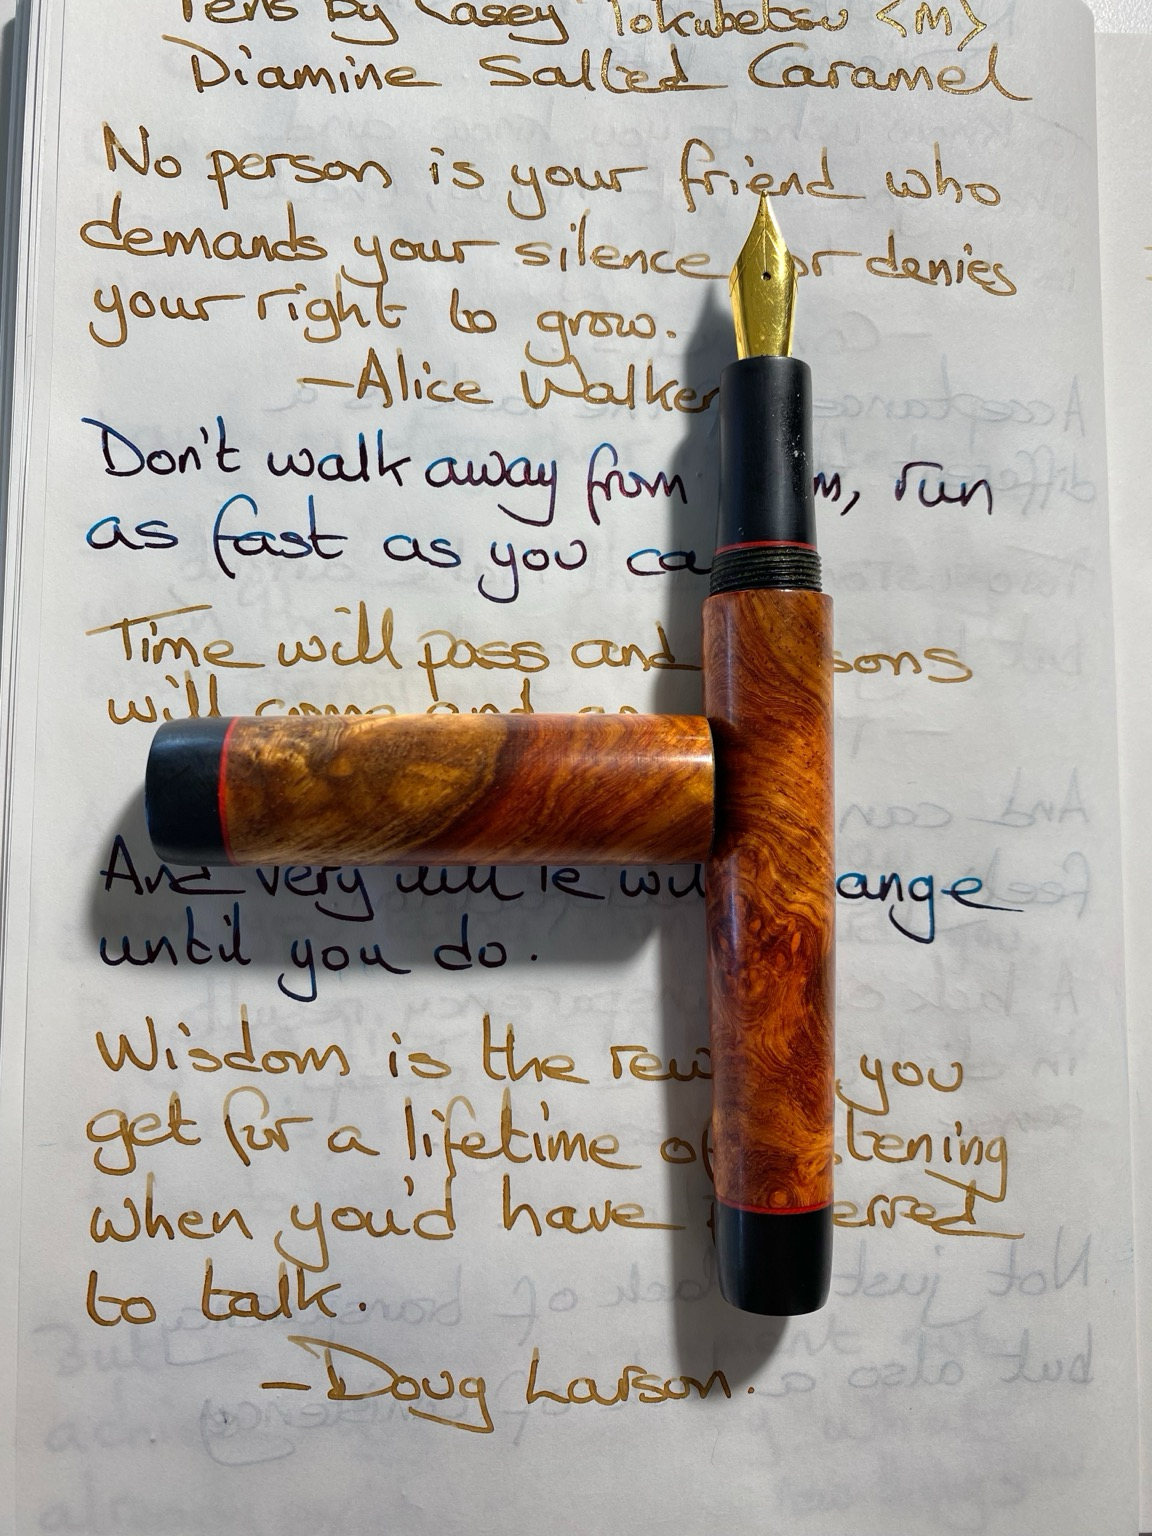 Pens By Casey Tokubetsu <M>
Diamine Salted Caramel
No person is your friend who
demands your silence or denies
your right to grow.
-Alice Walker
Don't walk away from run
as fast as you
Time will pass and
will come and
And very will
until you do.
Wisdom is the you
get for a lifetime of
when you'd have
to talk.
-Doug Larson.